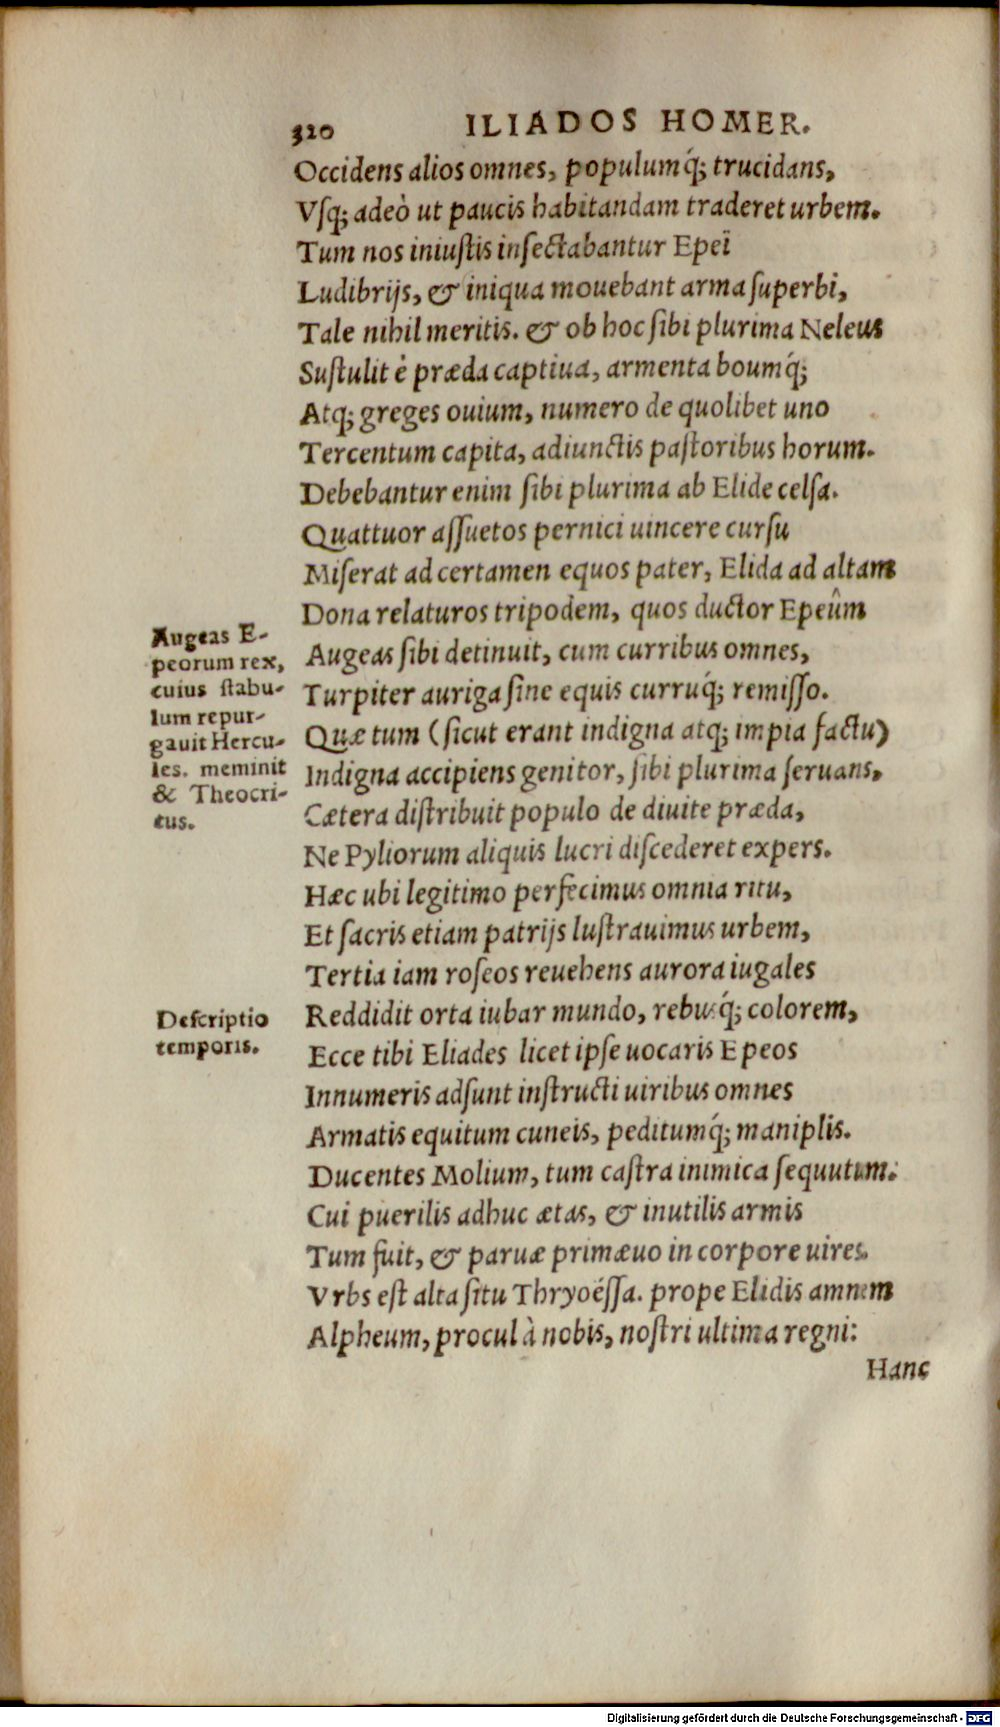 320 ILIADOS HOMER.
Occidens alios omnes, populumq́; trucidans,
Vſq; adeò ut paucis habitandam traderet urbem.
Tum nos iniuſtis inſectabantur Epeî
Ludibrijs, & iniqua mouebant arma ſuperbi,
Tale nihil meritis. & ob hoc ſibi plurima Neleus
Suſtulit è præda captiua, armenta boumq́;
Atq; greges ouium, numero de quolibet uno
Tercentum capita, adiunctis paſtoribus horum.
Debebantur enim ſibi plurima ab Elide celſa.
Quattuor aſſuetos pernici uincere curſu
Miſerat ad certamen equos pater, Elida ad altam
Dona relaturos tripodem, quos ductor Epeûm
Augeas ſibi detinuit, cum curribus omnes,
Turpiter auriga ſine equis curruq́; remiſſo.
Quæ tum (ſicut erant indigna atq; impia factu)
Indigna accipiens genitor, ſibi plurima ſeruans,
Cætera diſtribuit populo de diuite præda,
Ne Pyliorum aliquis lucri diſcederet expers.
Hæc ubi legitimo perfecimus omnia ritu,
Et ſacris etiam patrijs luſtrauimus urbem,
Tertia iam roſeos reuehens aurora iugales
Reddidit orta iubar mundo, rebusq́; colorem,
Ecce tibi Eliades licet ipſe uocaris Epeos
Innumeris adſunt inſtructi uiribus omnes
Armatis equitum cuneis, peditumq́; maniplis.
Ducentes Molium, tum caſtra inimica ſequutum.
Cui puerilis adhuc ætas, & inutilis armis
Tum fuit, & paruæ primæuo in corpore uires.
Vrbs eſt alta ſitu Thryoéſſa. prope Elidis amnem
Alpheum, procul à nobis, noſtri ultima regni:
Hanc
Augeas E-
peorum rex,
cuius ſtabu-
lum repur-
gauit Hercu-
les. meminit
& Theocri-
tus.
Deſcriptio
temporis.
Digitalisierung gefördert durch die Deutsche Forschungsgemeinschaft - DFG